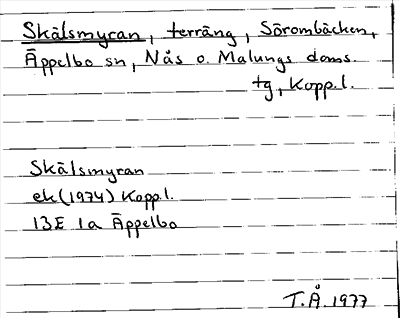 Skålsmyran, terräng, Sörombäcken,
Äppelbo sn, Nås o. Malungs doms.
tg, Kopp.l.
Skålsmyran
ek (1974) Kopp.l.
13E 1a Äppelbo
T.Å. 1977